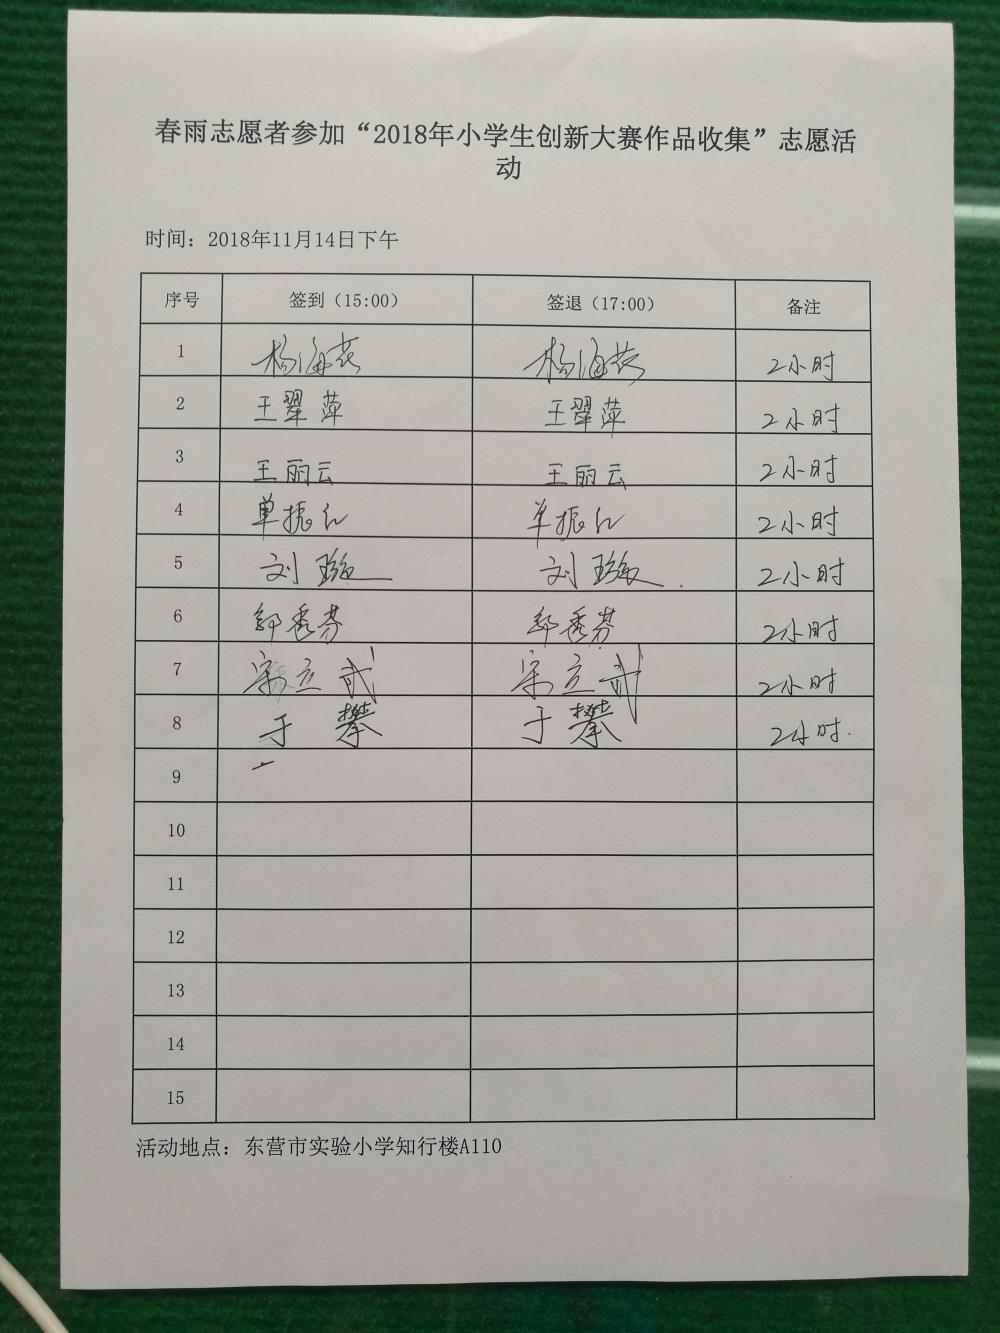 春雨志愿者参加“2018年小学生创新大赛作品收集”志愿活
动
时间：2018年11月14日下午
序号 签到（15:00） 签退（17:00） 备注
1 杨海花 杨海花 2小时
2 王翠萍 王翠萍 2小时
3 王丽云 王丽云 2小时
4 单振红 单振红 2小时
5 刘璇 刘璇 2小时
6 郭秀芬 郭秀芬 2小时
7 宋立武 宋立武 2小时
8 于攀 于攀 2小时.
9
10
11
12
13
14
15
活动地点：东营市实验小学知行楼A110